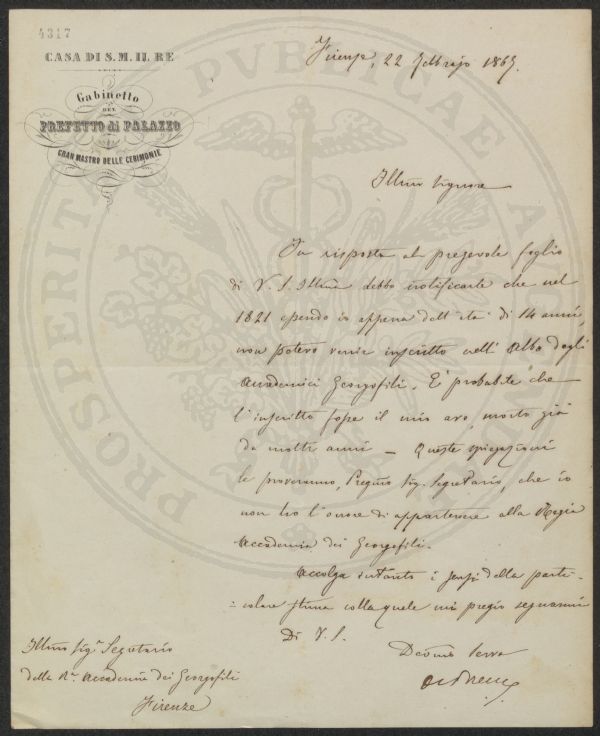 4317
CASA DI S.M. IL RE
Gabinetto
DEL
PREFETTO di PALAZZO
GRAN MASTRO DELLE CERIMONIE
Firenze, 22 Febbrajo 1865.
Illmo Signore
In risposta al pregevole foglio
di V. S. Illma debbo notificarle che nel
1821 essendo io appena dell' età di 14 anni,
non potevo venir inscritto nell' Albo degli
Accademici Georgofili. E' probabile che
l'inscritto fosse il mio avo, morto già
da molti anni — Queste spiegazioni
le proveranno, Pregmo Sig. Segretario, che io
non ho l'onore di appartenere alla Regia
Accademia dei Georgofili.
Accolga intanto i sensi della parti-
-colare stima colla quale mi pregio segnarmi
Di V. S.
Devmo Servo
Illmo Sigr Segretario
della Ra Accademia dei Georgofili
Firenze
PROSPERITA PUBLICAE A